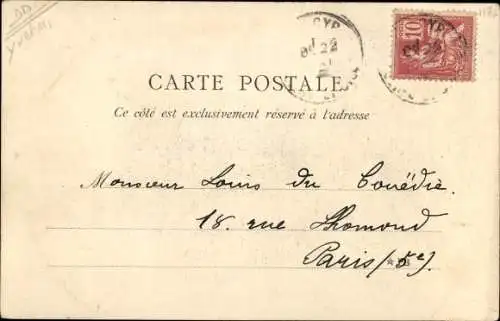 CARTE POSTALE
Ce côté est exclusivement réservé à l'adresse
Monsieur Louis du Couëdic.
18. rue Lhomond
Paris (5e).
10